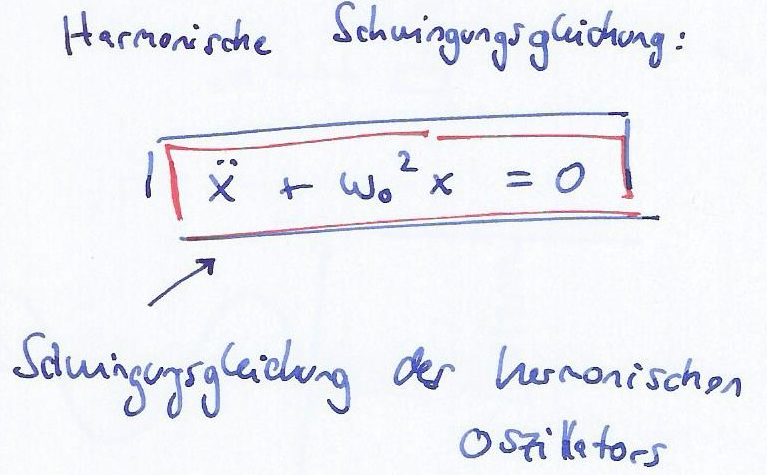 Harmonische Schwingungsgleichung:
ẍ + ω₀² x = 0
Schwingungsgleichung des harmonischen
Oszillators